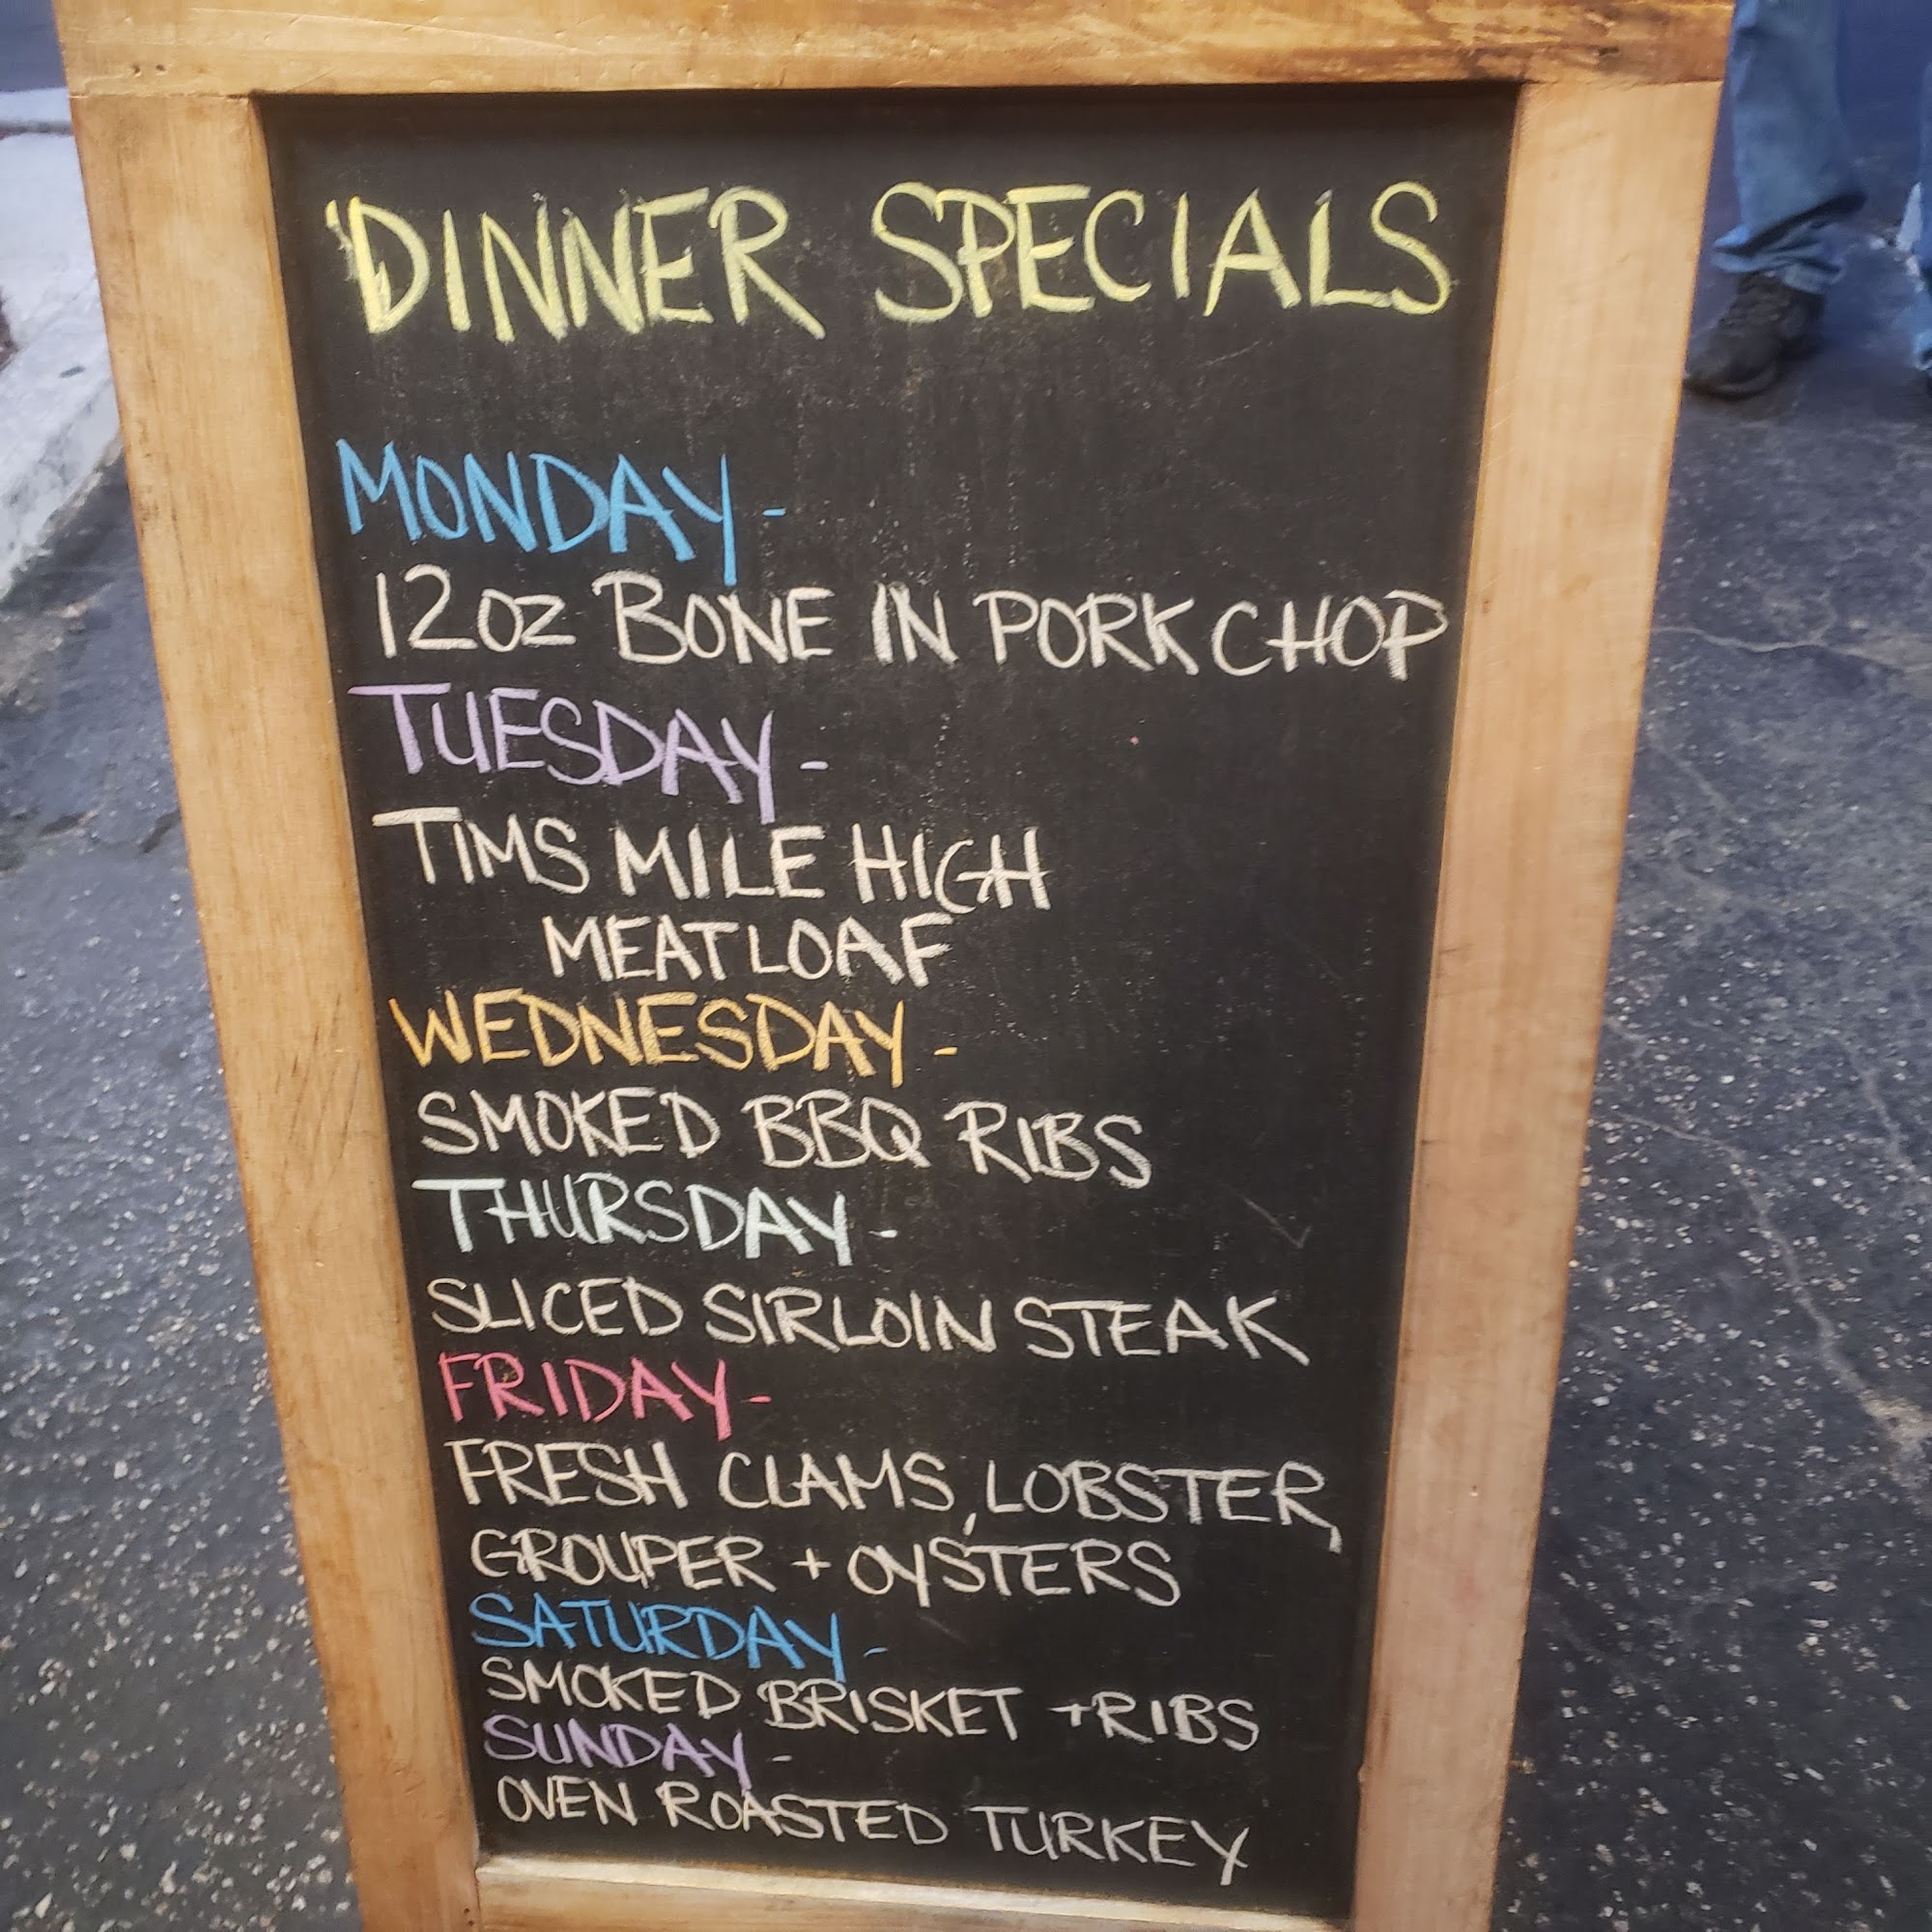 DINNER SPECIALS
MONDAY -
12OZ BONE IN PORK CHOP
TUESDAY -
TIMS MILE HIGH
MEATLOAF
WEDNESDAY -
SMOKED BBQ RIBS
THURSDAY -
SLICED SIRLOIN STEAK
FRIDAY -
FRESH CLAMS, LOBSTER,
GROUPER + OYSTERS
SATURDAY -
SMOKED BRISKET + RIBS
SUNDAY -
OVEN ROASTED TURKEY